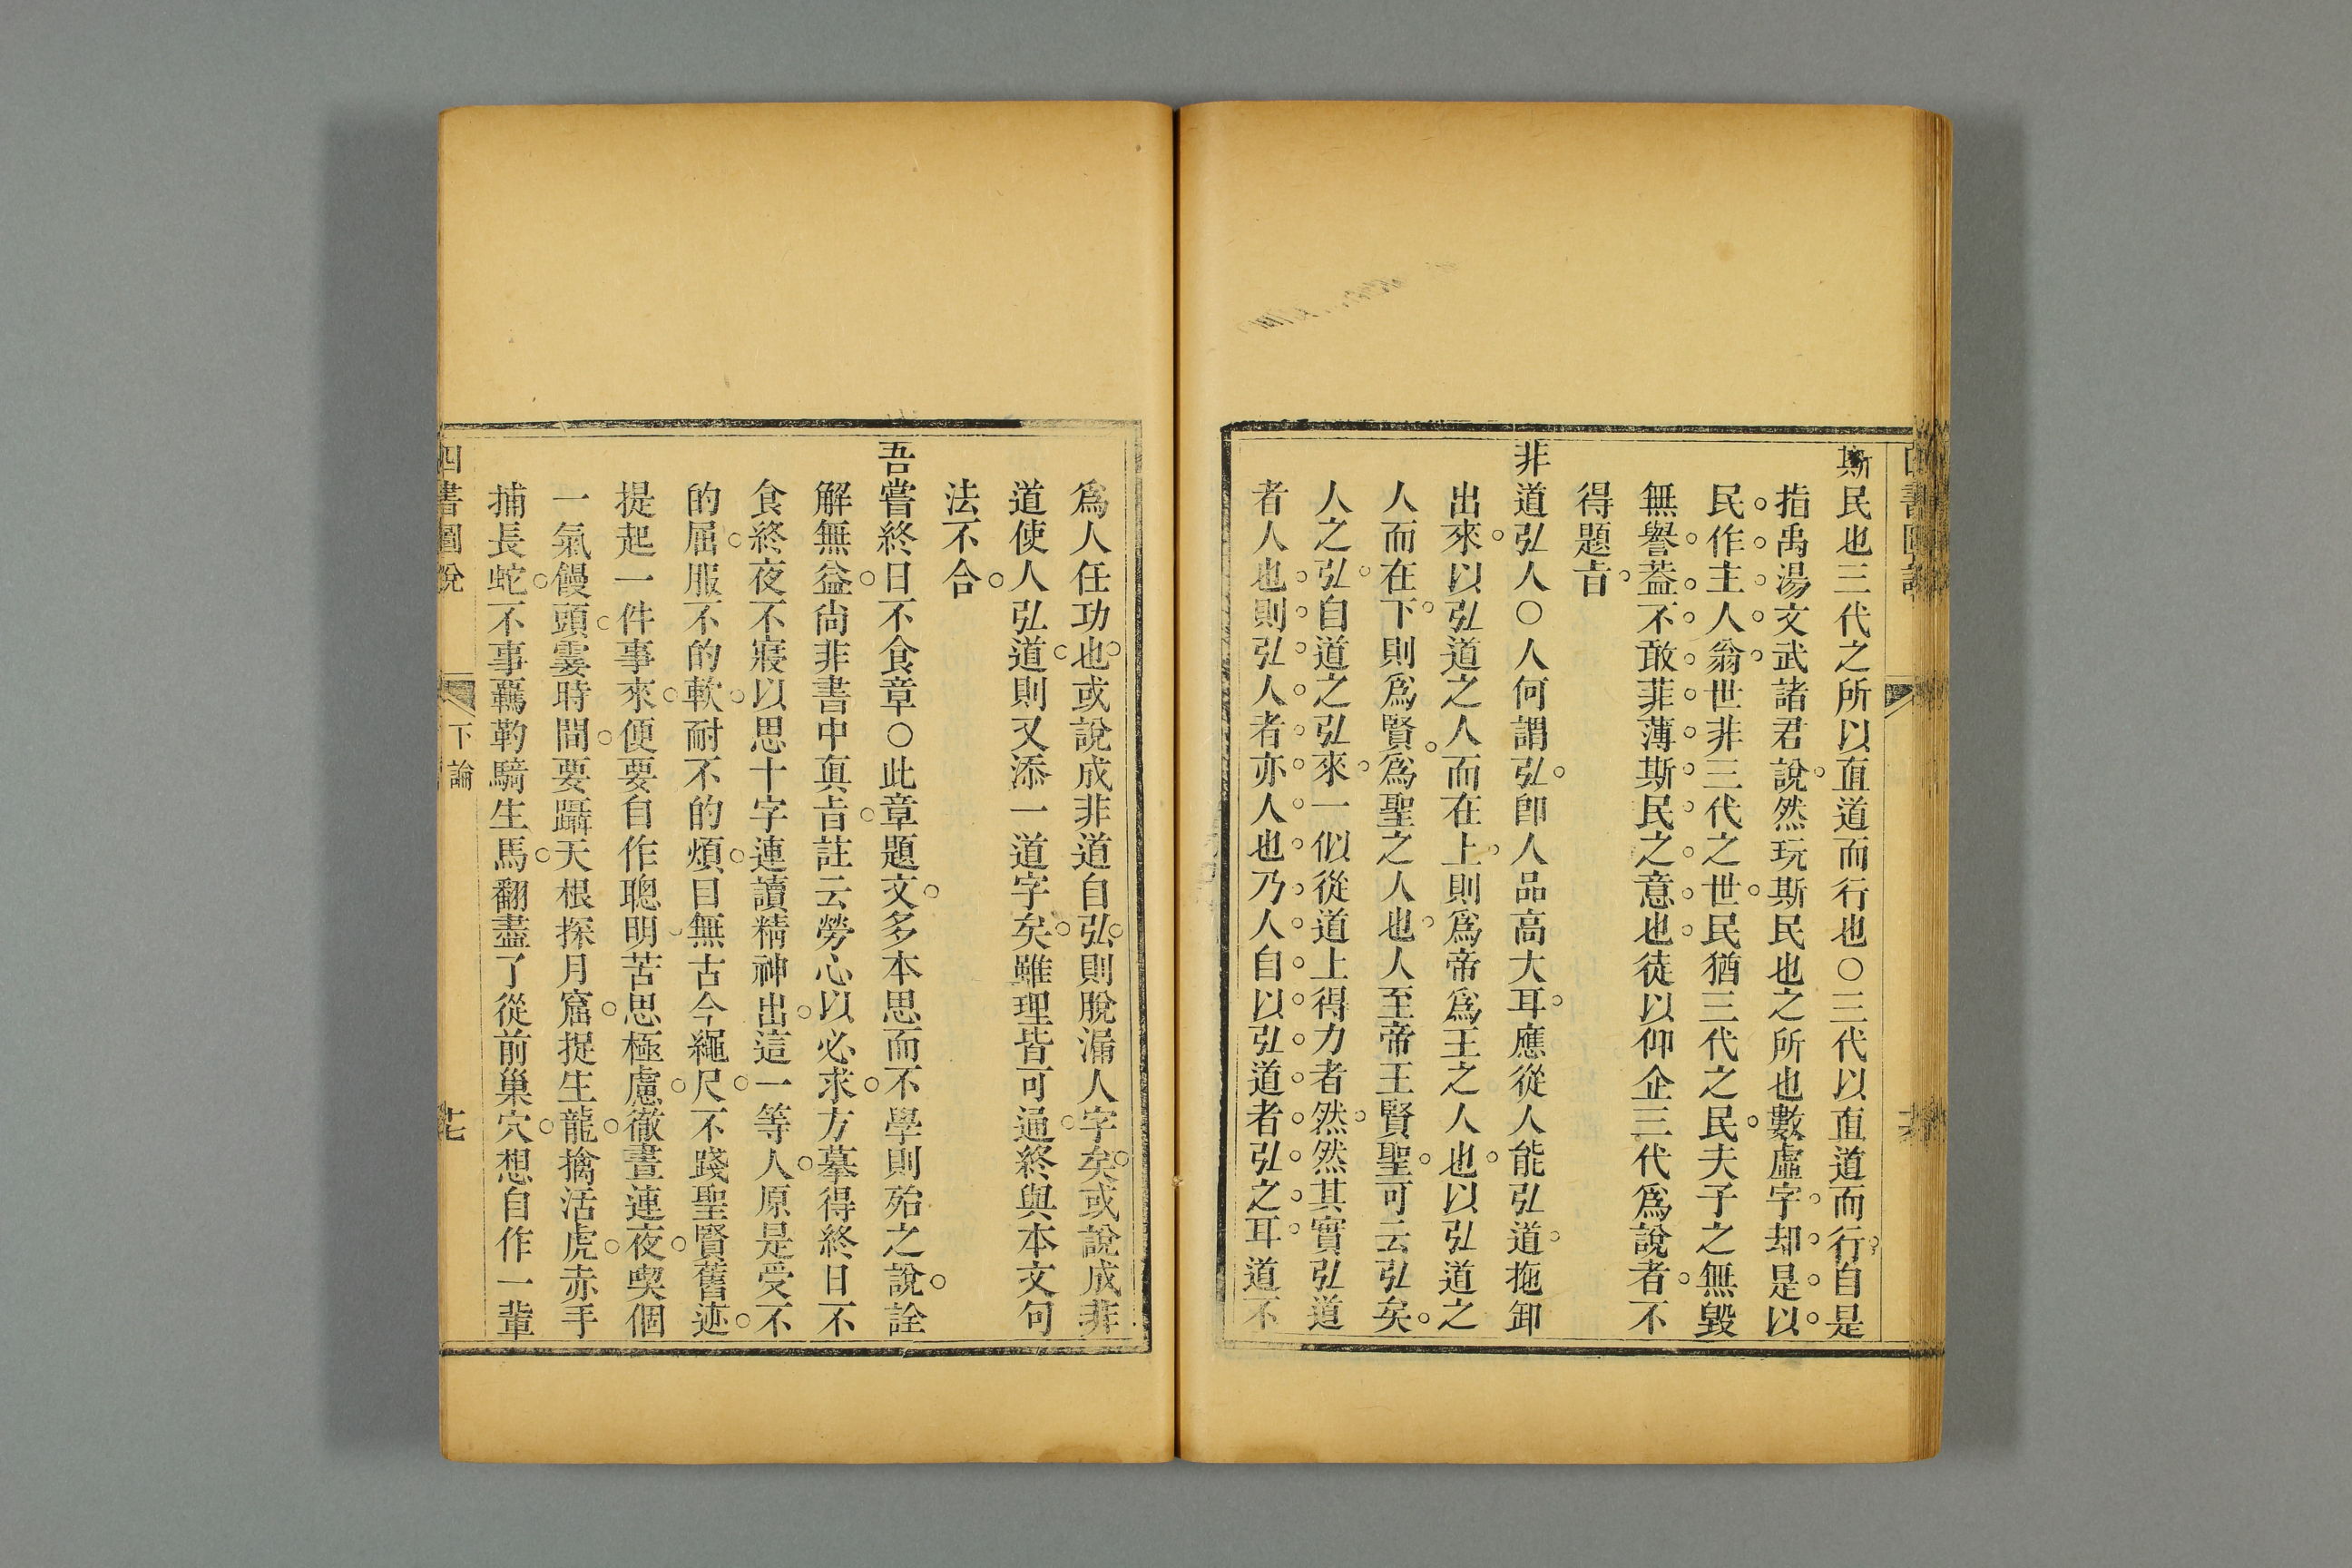 斯民也三代之所以直道而行也○三代以直道而行自是
指禹湯文武諸君說然玩斯民也之所也數虛字却是以
民作主人翁世非三代之世民猶三代之民夫子之無毀
無譽葢不敢菲薄斯民之意也徒以仰企三代爲說者不
得題㫖
非道弘人○人何謂弘卽人品高大耳應從人能弘道拖卸
出來以弘道之人而在上則爲帝爲王之人也以弘道之
人而在下則爲賢爲聖之人也人至帝王賢聖可云弘矣
人之弘自道之弘來一似從道上得力者然然其實弘道
者人也則弘人者亦人也乃人自以弘道者弘之耳道不
爲人任功也或說成非道自弘則脫漏人字矣或說成非
道使人弘道則又添一道字矣雖理皆可通終與本文句
法不合
吾嘗終日不食章○此章題文多本思而不學則殆之說詮
解無益尙非書中眞㫖註云勞心以必求方摹得終日不
食終夜不寢以思十字連讀精神出這一等人原是受不
的屈服不的軟耐不的煩目無古今繩尺不踐聖賢舊迹
提起一件事來便要自作聰明苦思極慮徹晝連夜喫個
一氣饅頭霎時間要躡天根探月窟捉生龍擒活虎赤手
捕長蛇不事羈勒騎生馬翻盡了從前巢穴想自作一輩
四書圖說
下論